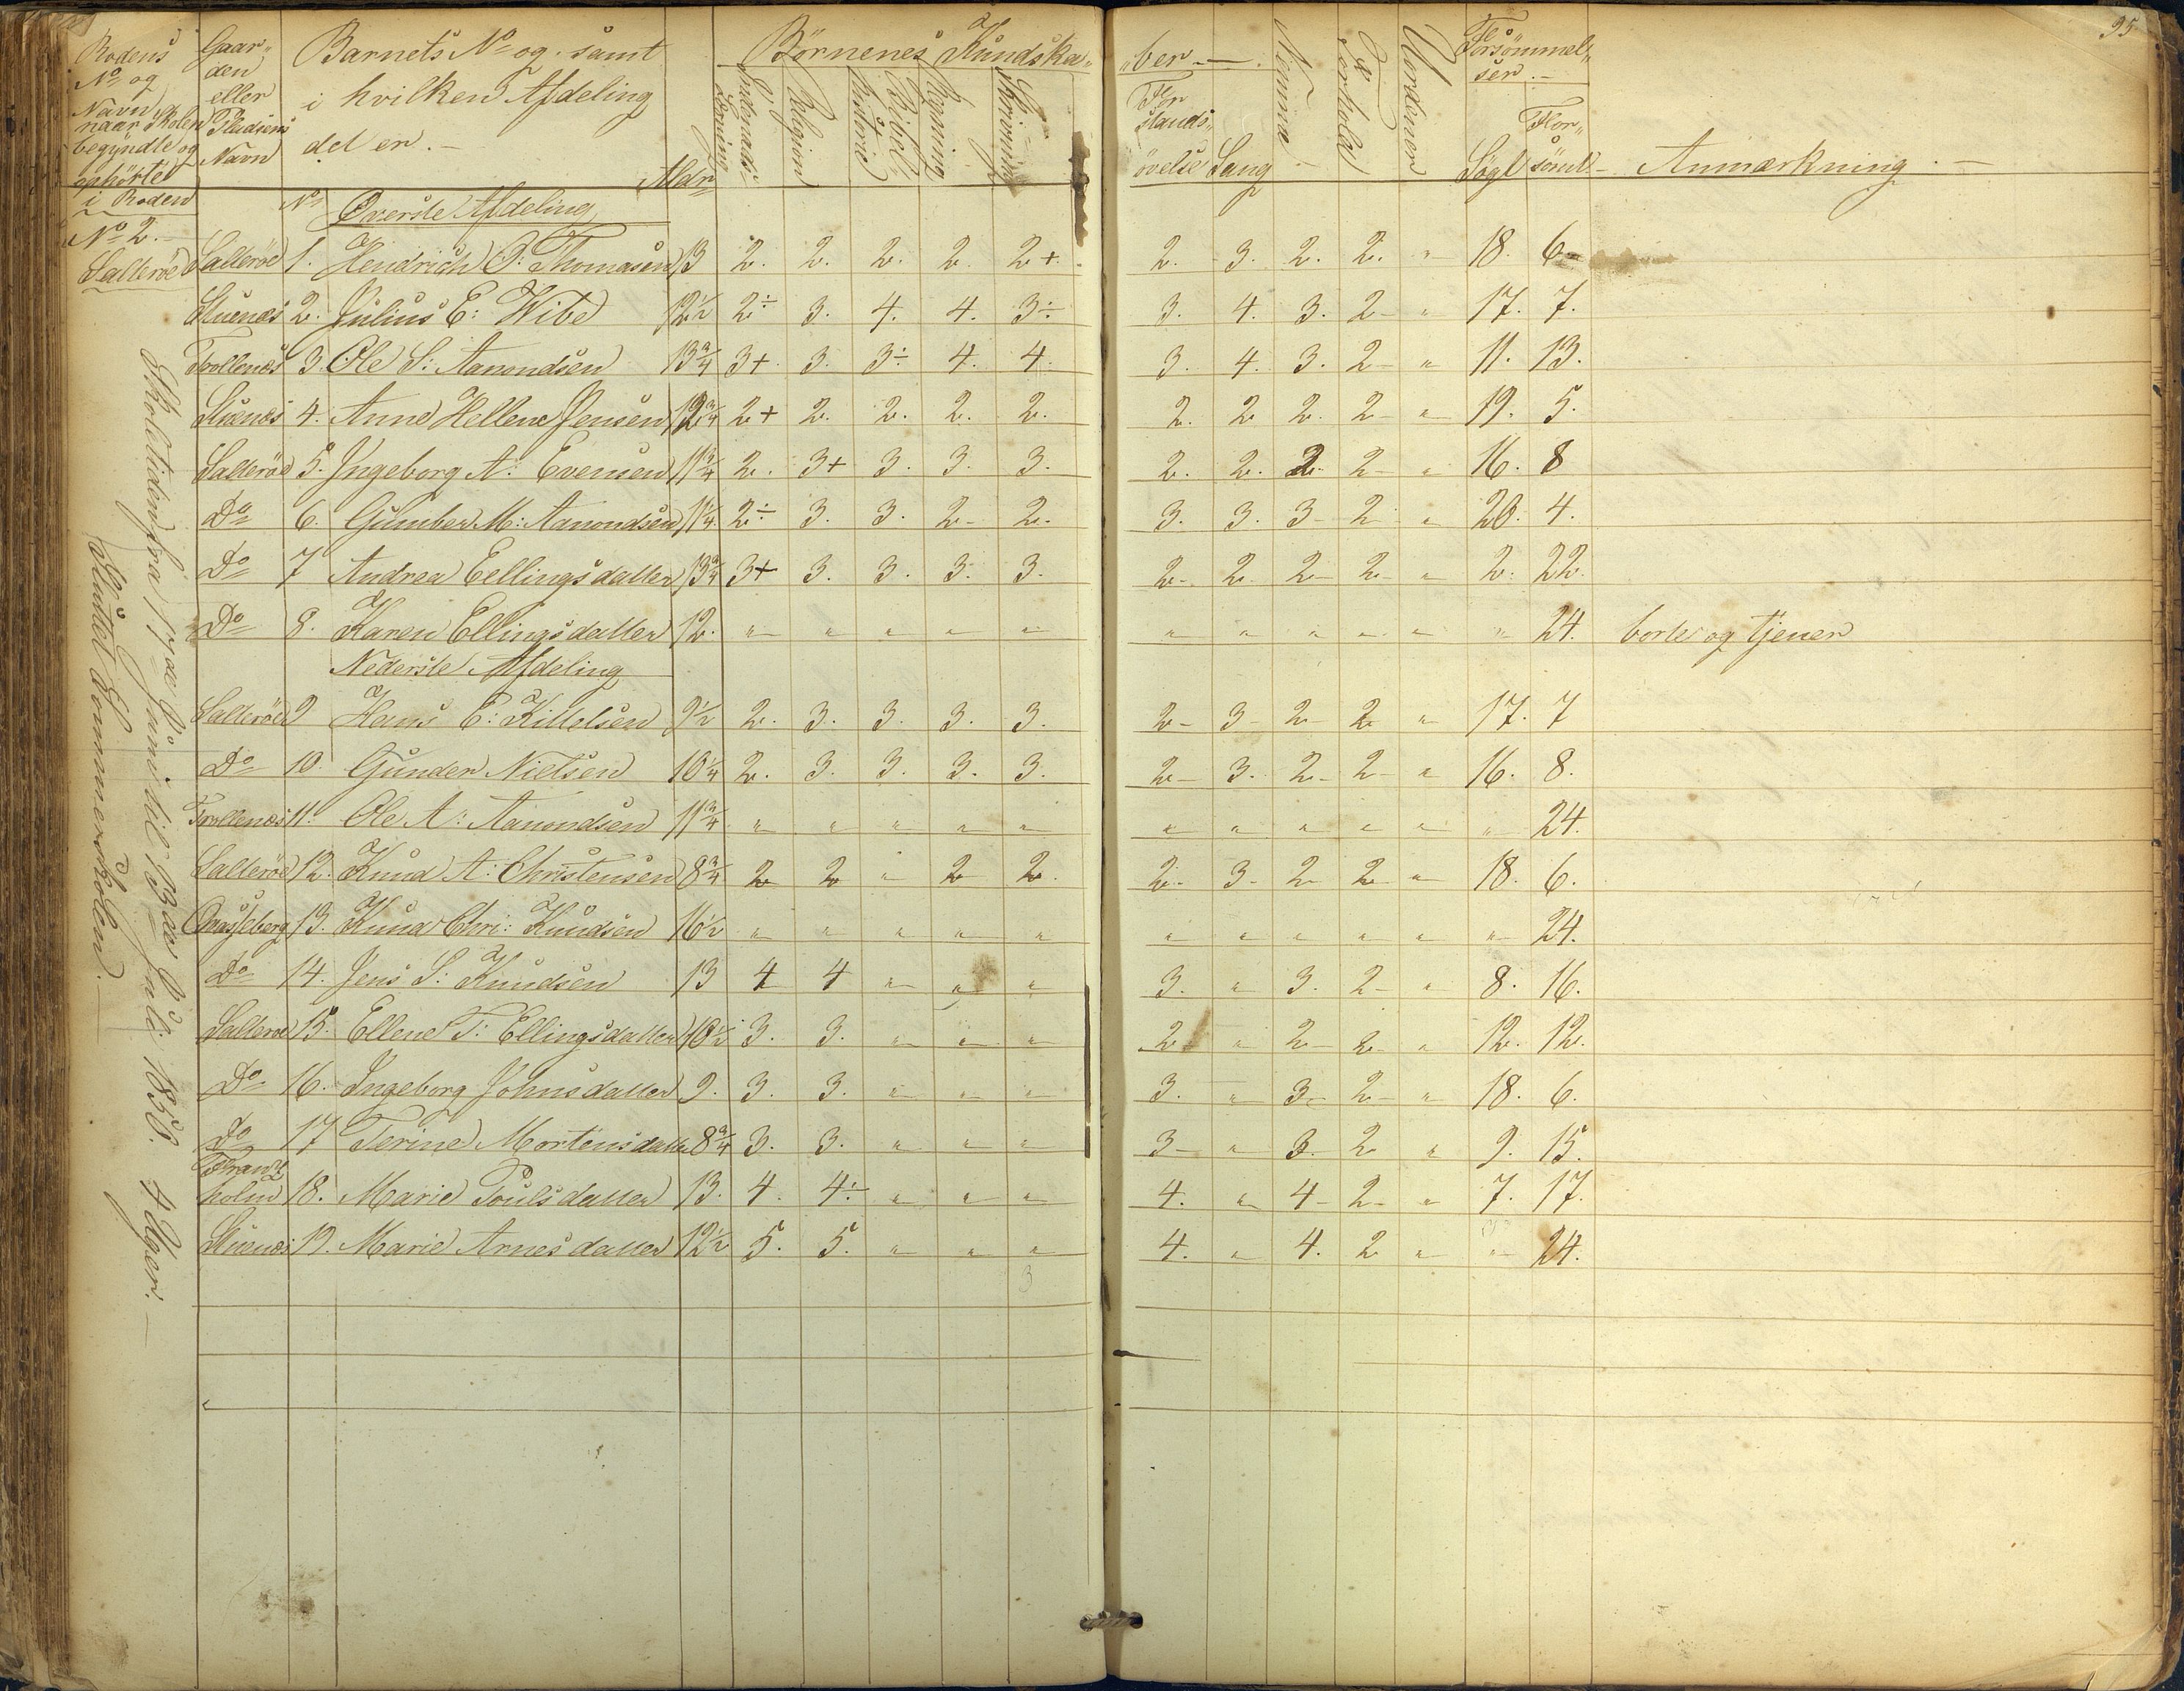 95
Rodens Nº og Navn naar Skolen begyndte og ophørte i Roden
Gaarden eller Pladsens Navn
Barnets Nº og samt i hvilken Afdeling det er.–
Alder
Børnenes Kundska„
„ber.—
Indenads Læsning
Religion
Bibel-historie
Regning
Skrivning
For„stands„øvelse
Sang
Nemme
Forhold
Uordener
Forsømmel„ser.–
Søgt
For„sømt–
Anmærkning.—
Nº 2.–
Sallerøe
Skoletiden fra 17de Juni til 13de Juli 1858. 4 Uger.—
Sluttet Sommerskolen.—
Nº Øverste Afdeling
Sallerøe 1. Hendrich P: Thomasen 13 2. 2. 2. 2. 2+ 2. 3. 2. 2. „ 18. 6–
Stuenæs 2. Julius E: Wibe 12½ 2÷ 3. 4. 4. 3÷ 3. 4. 3. 2– „ 17. 7.
Trollenæs 3. Ole S: Aanondsen 13¾ 3+ 3. 3÷ 4. 4. 3. 4. 3. 2– „ 11. 13.
Stuenæs 4. Anne Hellene Jensen 12¾ 2+ 2. 2. 2. 2. 2. 2 2. 2– „ 19. 5.
Sallerøe 5. Ingeborg A: Evensen 11¾ 2. 3+ 3. 3. 3. 2. 2. 2. 2– „ 16. 8
Do 6. Gumber M: Aanondsen 11¼ 2÷ 3. 3. 2– 2. 3. 3. 3– 2– „ 20. 4.
Do 7 Andrea Eellingsdatter 13¾ 3+ 3. 3. 3. 3. 2– 2. 2– 2– „ 2. 22.
Do 8. Karen Ellingsdatter 12. „ „ „ „ „ „ „ „ „ „ „ 24. borte og tjener
Nederste Afdeling
Sallerøe 9 Hans E: Kittelsen 9½ 2. 3. 3. 3. 3. 2– 3– 2– 2 „ 17. 7
Do 10. Gunder Nielsen 10¼ 2. 3. 3. 3. 3. 2– 3. 2– 2– „ 16. 8.
Trollenæs 11. Ole A: Aanondsen 11¾ „ „ „ „ „ „ „ „ „ „ „ 24.
Sallerøe 12. Knud A: Christensen 8¾ 2 2 „ 2 2. 2– 3– 2 2– „ 18. 6.
13. Knud Chri: Knudsen 16½ „ „ „ „ „ „ „ „ „ „ „ 24.
Do 14. Jens S: Knudsen 13 4 4 „ „ „ 3. „ 3. 2– „ 8. 16.
Sallerøe 15. Ellene T: Ellingsdatter 10½ 3. 3. „ „ „ 2 „ 2– 2– „ 12. 12.
Do 16. Ingeborg Johnsdatter 9. 3. 3. „ „ „ 3. „ 3– 2– „ 18. 6.
Do 17 Terine Mortensdatter 8¾ 3. 3. „ „ „ 3– „ 3. 2 „ 9. 15.
Frantzholm 18. Marie Poulsdatter 13. 4. 4÷ „ „ „ 4. „ 4– 2– „ 7. 17.
Stuenæs 19. Marie Arnesdatter 12½ 5. 5. „ „ „ 4. „ 4. 2 „ „ 24.
3